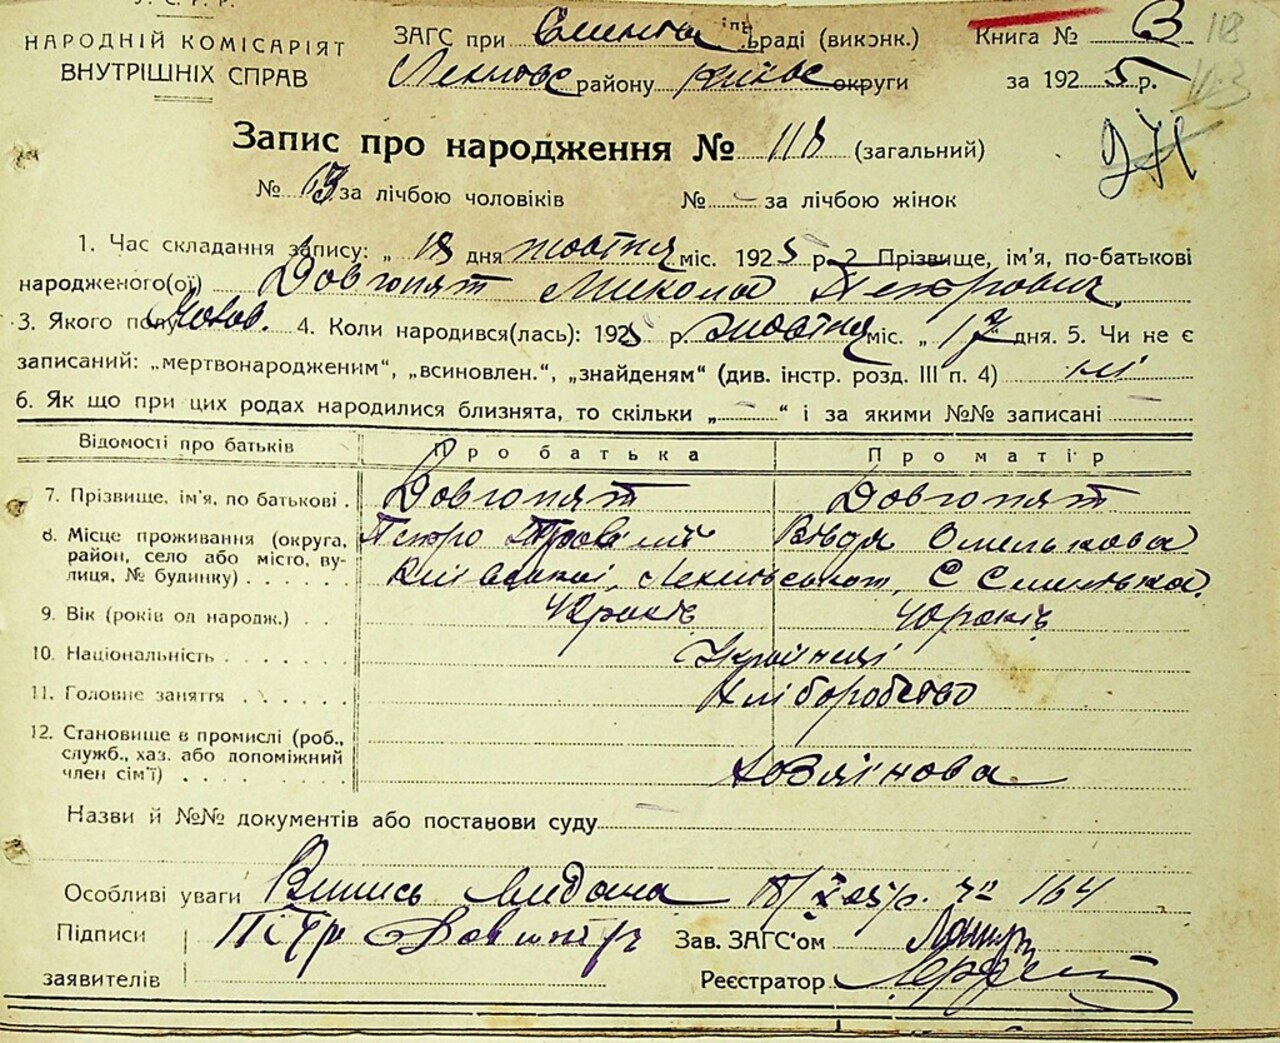 У.С.Р.Р.
НАРОДНІЙ КОМІСАРІЯТ
ВНУТРІШНІХ СПРАВ
ЗАГС при раді (виконк.)
району округи
Книга № 3
за 1925 р.
118
Запис про народження № 118 (загальний)
№ 63 за лічбою чоловіків № - за лічбою жінок
1. Час складання запису: „ 18 дня жовтня міс. 1925 р. 2. Прізвище, ім'я, по-батькові
народженого(ої) Довгопят Микола Петрович
3. Якого полу Чолов. 4. Коли народився(лась): 1925 р. жовтня міс. „ 17 " дня. 5. Чи не є
записаний: „мертвонародженим“, „всиновлен.“, „знайденям“ (див. інстр. розд. III п. 4) ні
6. Як що при цих родах народилися близнята, то скільки „ - “ і за якими №№ записані -
Відомості про батьків Про батька Про матір
7. Прізвище, ім'я, по батькові . Довгопят Довгопят
Петро Вівдя Омелькова
8. Місце проживання (округа, район, село або місто, вулиця, № будинку)
9. Вік (років од народж.) 42 років 40 років
10. Національність Українці
11. Головне заняття Хліборобство
12. Становище в промислі (роб., служб., хаз. або допоміжний член сім'ї)
Назви й №№ документів або постанови суду -
Особліві уваги Випись видана 18/X 25 р. № 164
Підписи заявителів Петр
Зав. ЗАГС'ом
Реєстратор